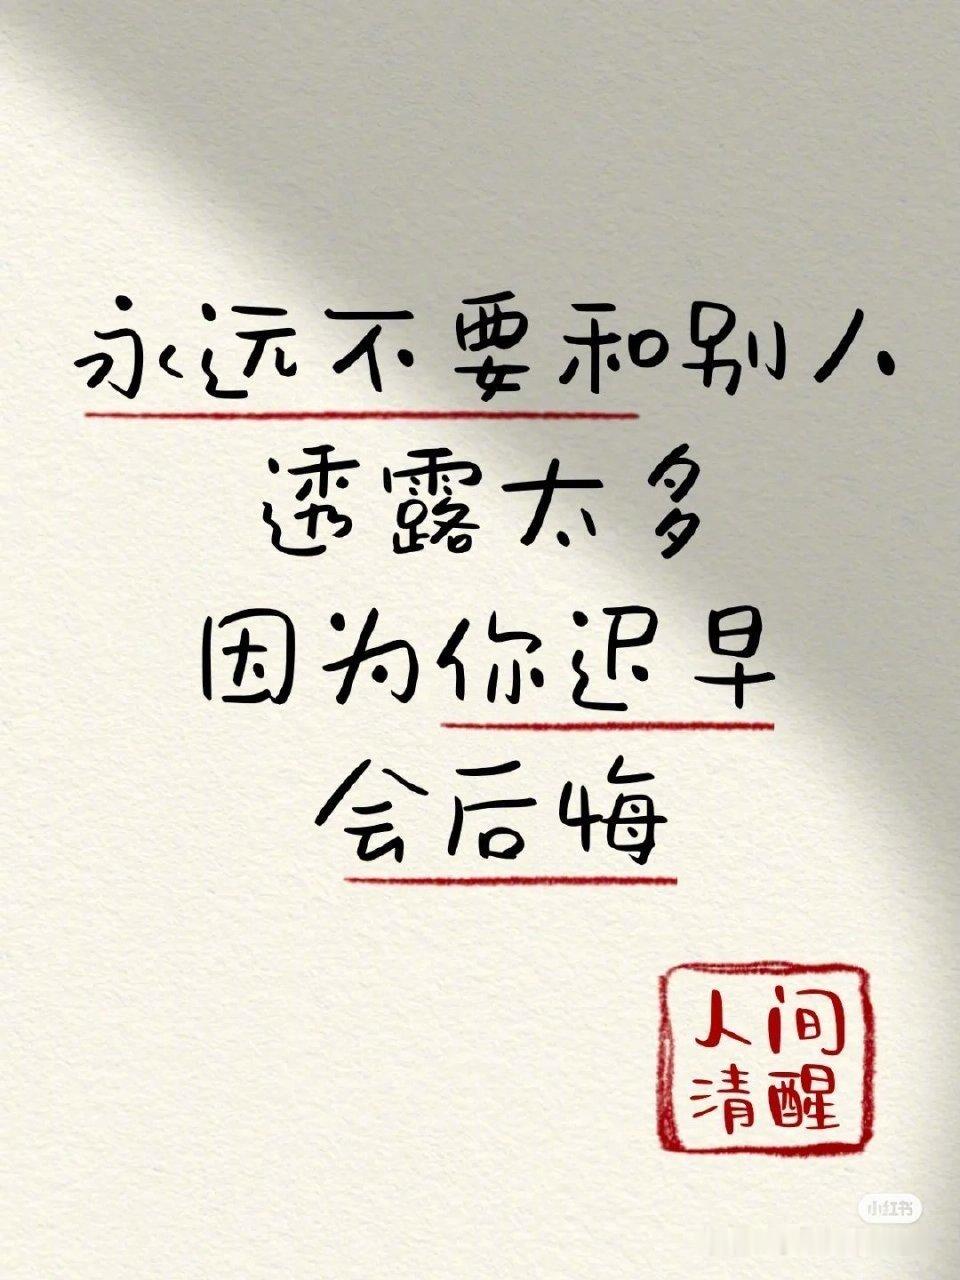 永远不要和别人
透露太多
因为你迟早
会后悔
人间
清醒
小红书